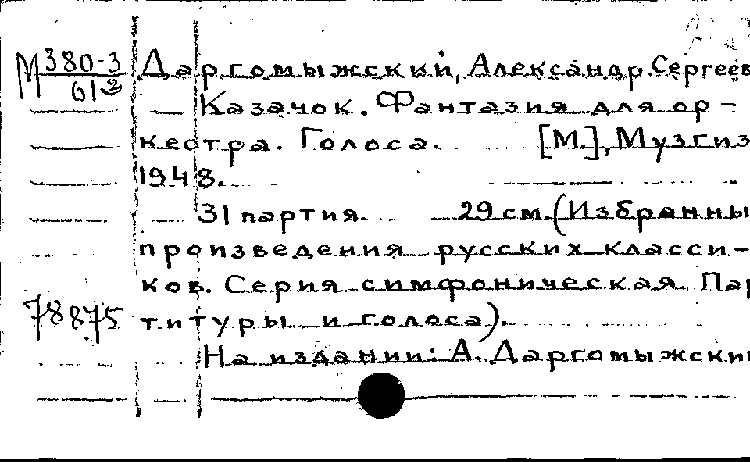 М 380-3
613
Даргомыжский, Александр Сергеев
Казачок. Фантазия для ор-
кестра. Голоса. [М.], Музгиз
1948.
31 партия. 29 см. (Избранны
произведения русских класси-
ков. Серия симфоническая Пар
78875
титуры и голоса).
На издании: А. Даргомыжский